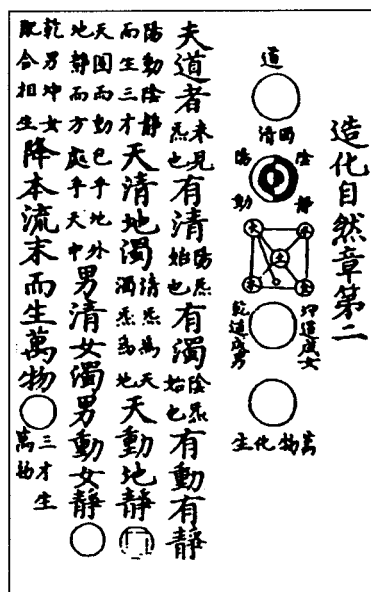 造化自然章第二
道
清
陰靜
陽動
火
水
土
木
金
坤道成女
乾道成男
萬物化生
夫道者未見炁也有清陽炁始也有濁陰炁始也有動有靜
陽動陰靜而生三才天清地濁清炁爲天濁炁爲地天動地靜
天圓而動包乎地外地靜而方處乎天中男清女濁男動女靜
乾男坤女配合相生降本流末而生萬物三才生萬物